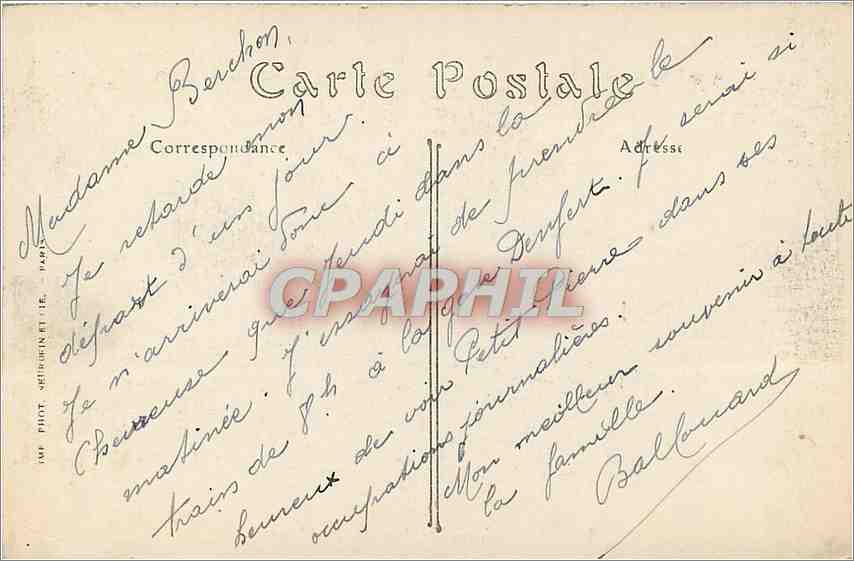 Carte Postale
Correspondance
Adresse
Madame Berchon,
Je retarde mon
départ d'un jour.
Je n'arriverai donc à
Chevreuse que Jeudi dans la
matinée. J'essayerai de prendre le
train de 8h à la gare Denfert. Je serai si
heureux de voir Petit Pierre dans ses
occupations journalières.
Mon meilleur souvenir à toute
la famille.
Ballouard
IMP. PHOT. NEURDEIN ET CIE. - PARIS
CPAPHIL